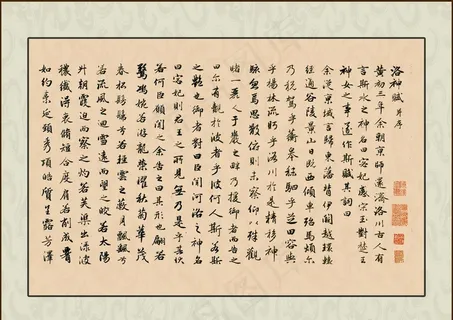 洛神賦 并序
黃初三年余朝京師還濟洛川古人有
言斯水之神名曰宓妃感宋玉對楚王
神女之事遂作斯賦其詞曰
余從京域言歸東藩背伊闕越轘轅
經通谷陵景山日既西傾車殆馬煩尔
乃稅駕乎蘅皋秣駟乎芝田容與
乎楊林流眄乎洛川於是精移神
駭忽焉思散俯則未察仰以殊觀
睹一麗人于巖之畔乃援御者而告之
曰尔有覿於彼者乎彼何人斯若斯
之艷也御者對曰臣聞河洛之神名
曰宓妃則君王之所見無乃是乎其狀
若何臣願聞之余告之曰其形也翩若
驚鴻婉若游龍榮曜秋菊華茂
春松髣髴兮若輕雲之蔽月飄飄兮
若流風之迴雪遠而望之皎若太陽
升朝霞迫而察之灼若芙蕖出淥波
穠纖得衷脩短合度肩若削成腰
如約素延頸秀項皓質呈露芳澤